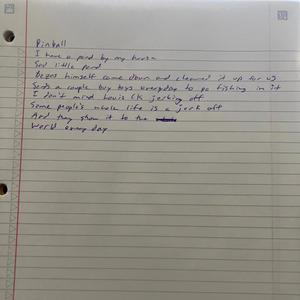 Pinball
I have a pond by my house
Sad little pond
Bezos himself came down and cleaned it up for us
Sends a couple buy toys everyday to go fishing in it
I don't mind Louis CK jerking off
Some people's whole life is a jerk off
And they show it to the
World every day